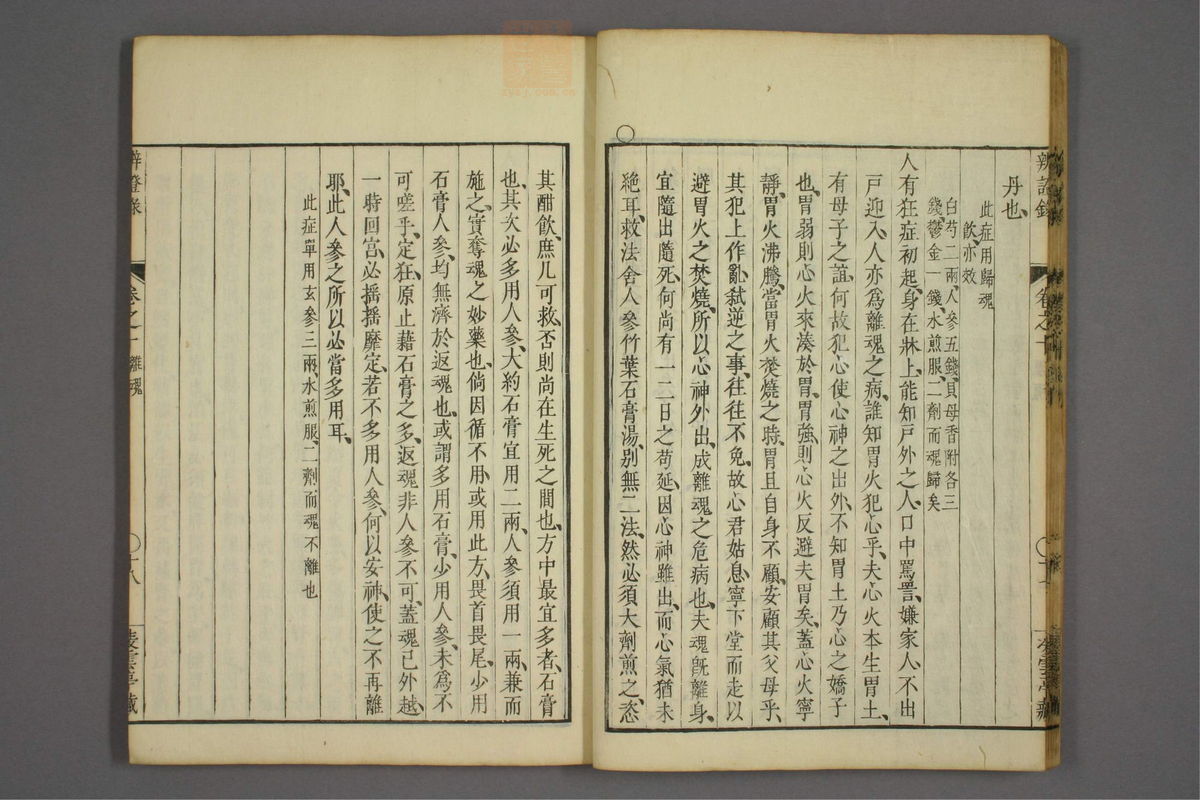 丹也、
此症用歸魂
飲、亦效
白芍二兩、人參五錢、貝母香附各三
錢、鬱金一錢、水煎服、二劑而魂歸矣
人有狂症初起、身在牀上、能知戶外之人、口中罵詈、嫌家人、不出
戶迎入、人亦爲離魂之病、誰知胃火犯心乎、夫心火本生胃土、
有母子之誼、何故犯心、使心神之出外、不知胃土乃心之嬌子
也、胃弱則心火來湊於胃、胃強則心火反避夫胃矣、蓋心火寧
靜、胃火沸騰、當胃火焚燒之時、胃且自身不顧、安顧其父母乎、
其犯上作亂、弒逆之事、往往不免、故心君姑息、寧下堂而走以
避胃火之焚燒、所以心神外出、成離魂之危病也、夫魂既離身、
宜隨出隨死、何尚有一二日之苟延、因心神雖出、而心氣猶未
絕耳、救法舍人參竹葉石膏湯、別無二法、然必須大劑煎之、恣
其酣飲、庶几可救、否則尚在生死之間也、方中最宜多者、石膏
也、其次必多用人參、大約石膏宜用二兩、人參須用一兩、兼而
施之、實奪魂之妙藥也、倘因循不用、或用此方、畏首畏尾、少用
石膏人參、均無濟於返魂也、或謂多用石膏、少用人參、未爲不
可、嗟乎、定狂、原止藉石膏之多、返魂非人參不可、蓋魂已外越、
一時回宮、必搖搖靡定、若不多用人參、何以安神、使之不再離
耶、此人參之所以必當多用耳、
此症單用玄參三兩、水煎服、二劑而魂不離也
辨證錄
卷之十
離魂
十八